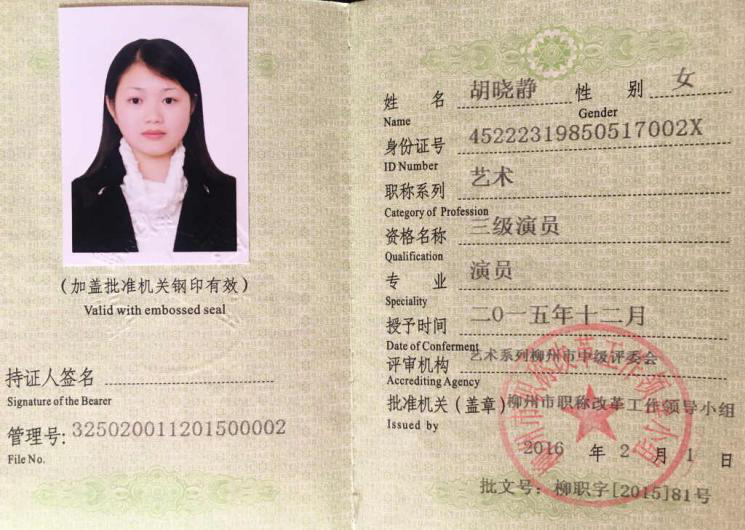 (加盖批准机关钢印有效)
Valid with embossed seal
持证人签名
Signature of the Bearer
管理号: 325020011201500002
File No.
姓 名 胡晓静 性 别 女
Name Gender
身份证号 45222319850517002X
ID Number
职称系列 艺术
Category of Profession
资格名称 三级演员
Qualification
专 业 演员
Speciality
授予时间 二〇一五年十二月
Date of Conferment
评审机构 艺术系列柳州市中级评委会
Accrediting Agency
批准机关(盖章) 柳州市职称改革工作领导小组
Issued by
2016 年 2 月 1 日
批文号: 柳职字[2015]81号
柳州市职称改革工作领导小组